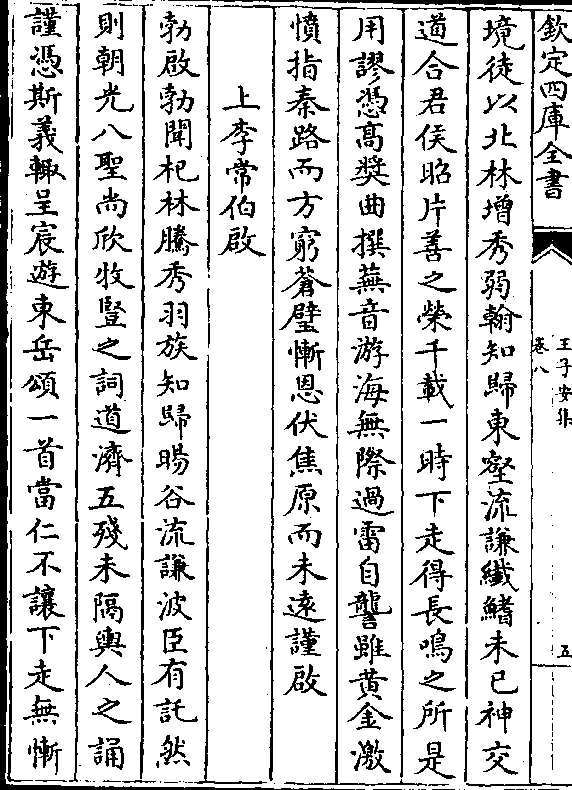 欽定四庫全書
王子安集
卷八
五
境徒以北林增秀弱翰知歸東壑流謙纎鰭未已神交
道合君侯昭片善之榮千載一時下走得長鳴之所是
用謬憑髙奬曲撰蕪音游海無際過雷自聾雖黄金激
憤指秦路而方窮蒼璧慚恩伏焦原而未逺謹啟
上李常伯啟
勃啟勃聞杞林騰秀羽族知歸暘谷流謙波臣有託然
則朝光八聖尚欣牧豎之詞道濟五殘未隔輿人之誦
謹憑斯義輙呈宸遊東岳頌一首當仁不讓下走無慚